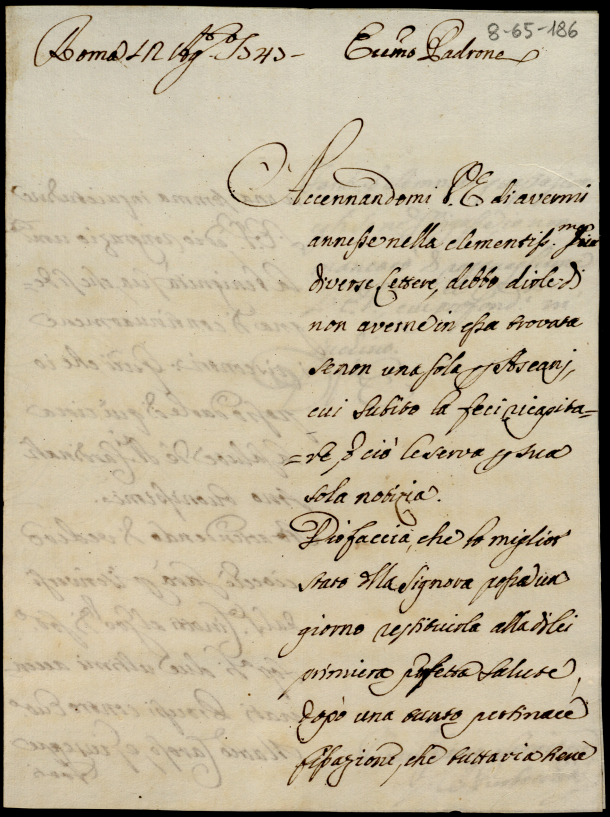 8-65-186
Roma 12 Ag.to 1543 Eccmo Padrone
Accennandomi V. E. di avermi
annesse nella clementiss.ma Sua
diverse Lettere, debbo dirle di
non averne in essa trovata
se non una sola p Aseanj,
cui subito la feci ricapita=
=re, e ciò le serva p sua
sola notizia.
Dio faccia, che lo miglior
stato della Signora possa un
giorno restituirla alla di lei
primiera perfetta salute,
dopò una tanto pertinace
fissazione, che tuttavia tiene